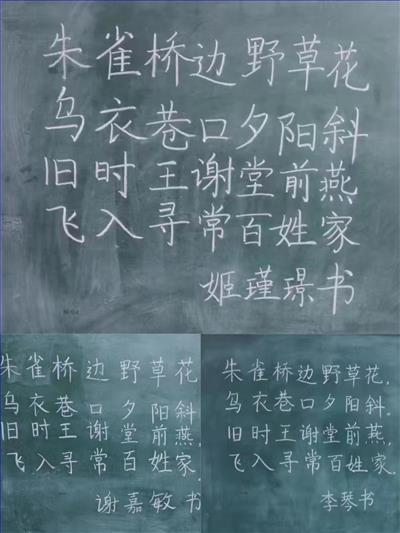 朱雀桥边野草花
乌衣巷口夕阳斜
旧时王谢堂前燕
飞入寻常百姓家
姬瑾璟书
朱雀桥边野草花
乌衣巷口夕阳斜
旧时王谢堂前燕.
飞入寻常百姓家.
谢嘉敏书
朱雀桥边野草花.
乌衣巷口夕阳斜.
旧时王谢堂前燕.
飞入寻常百姓家.
李琴书